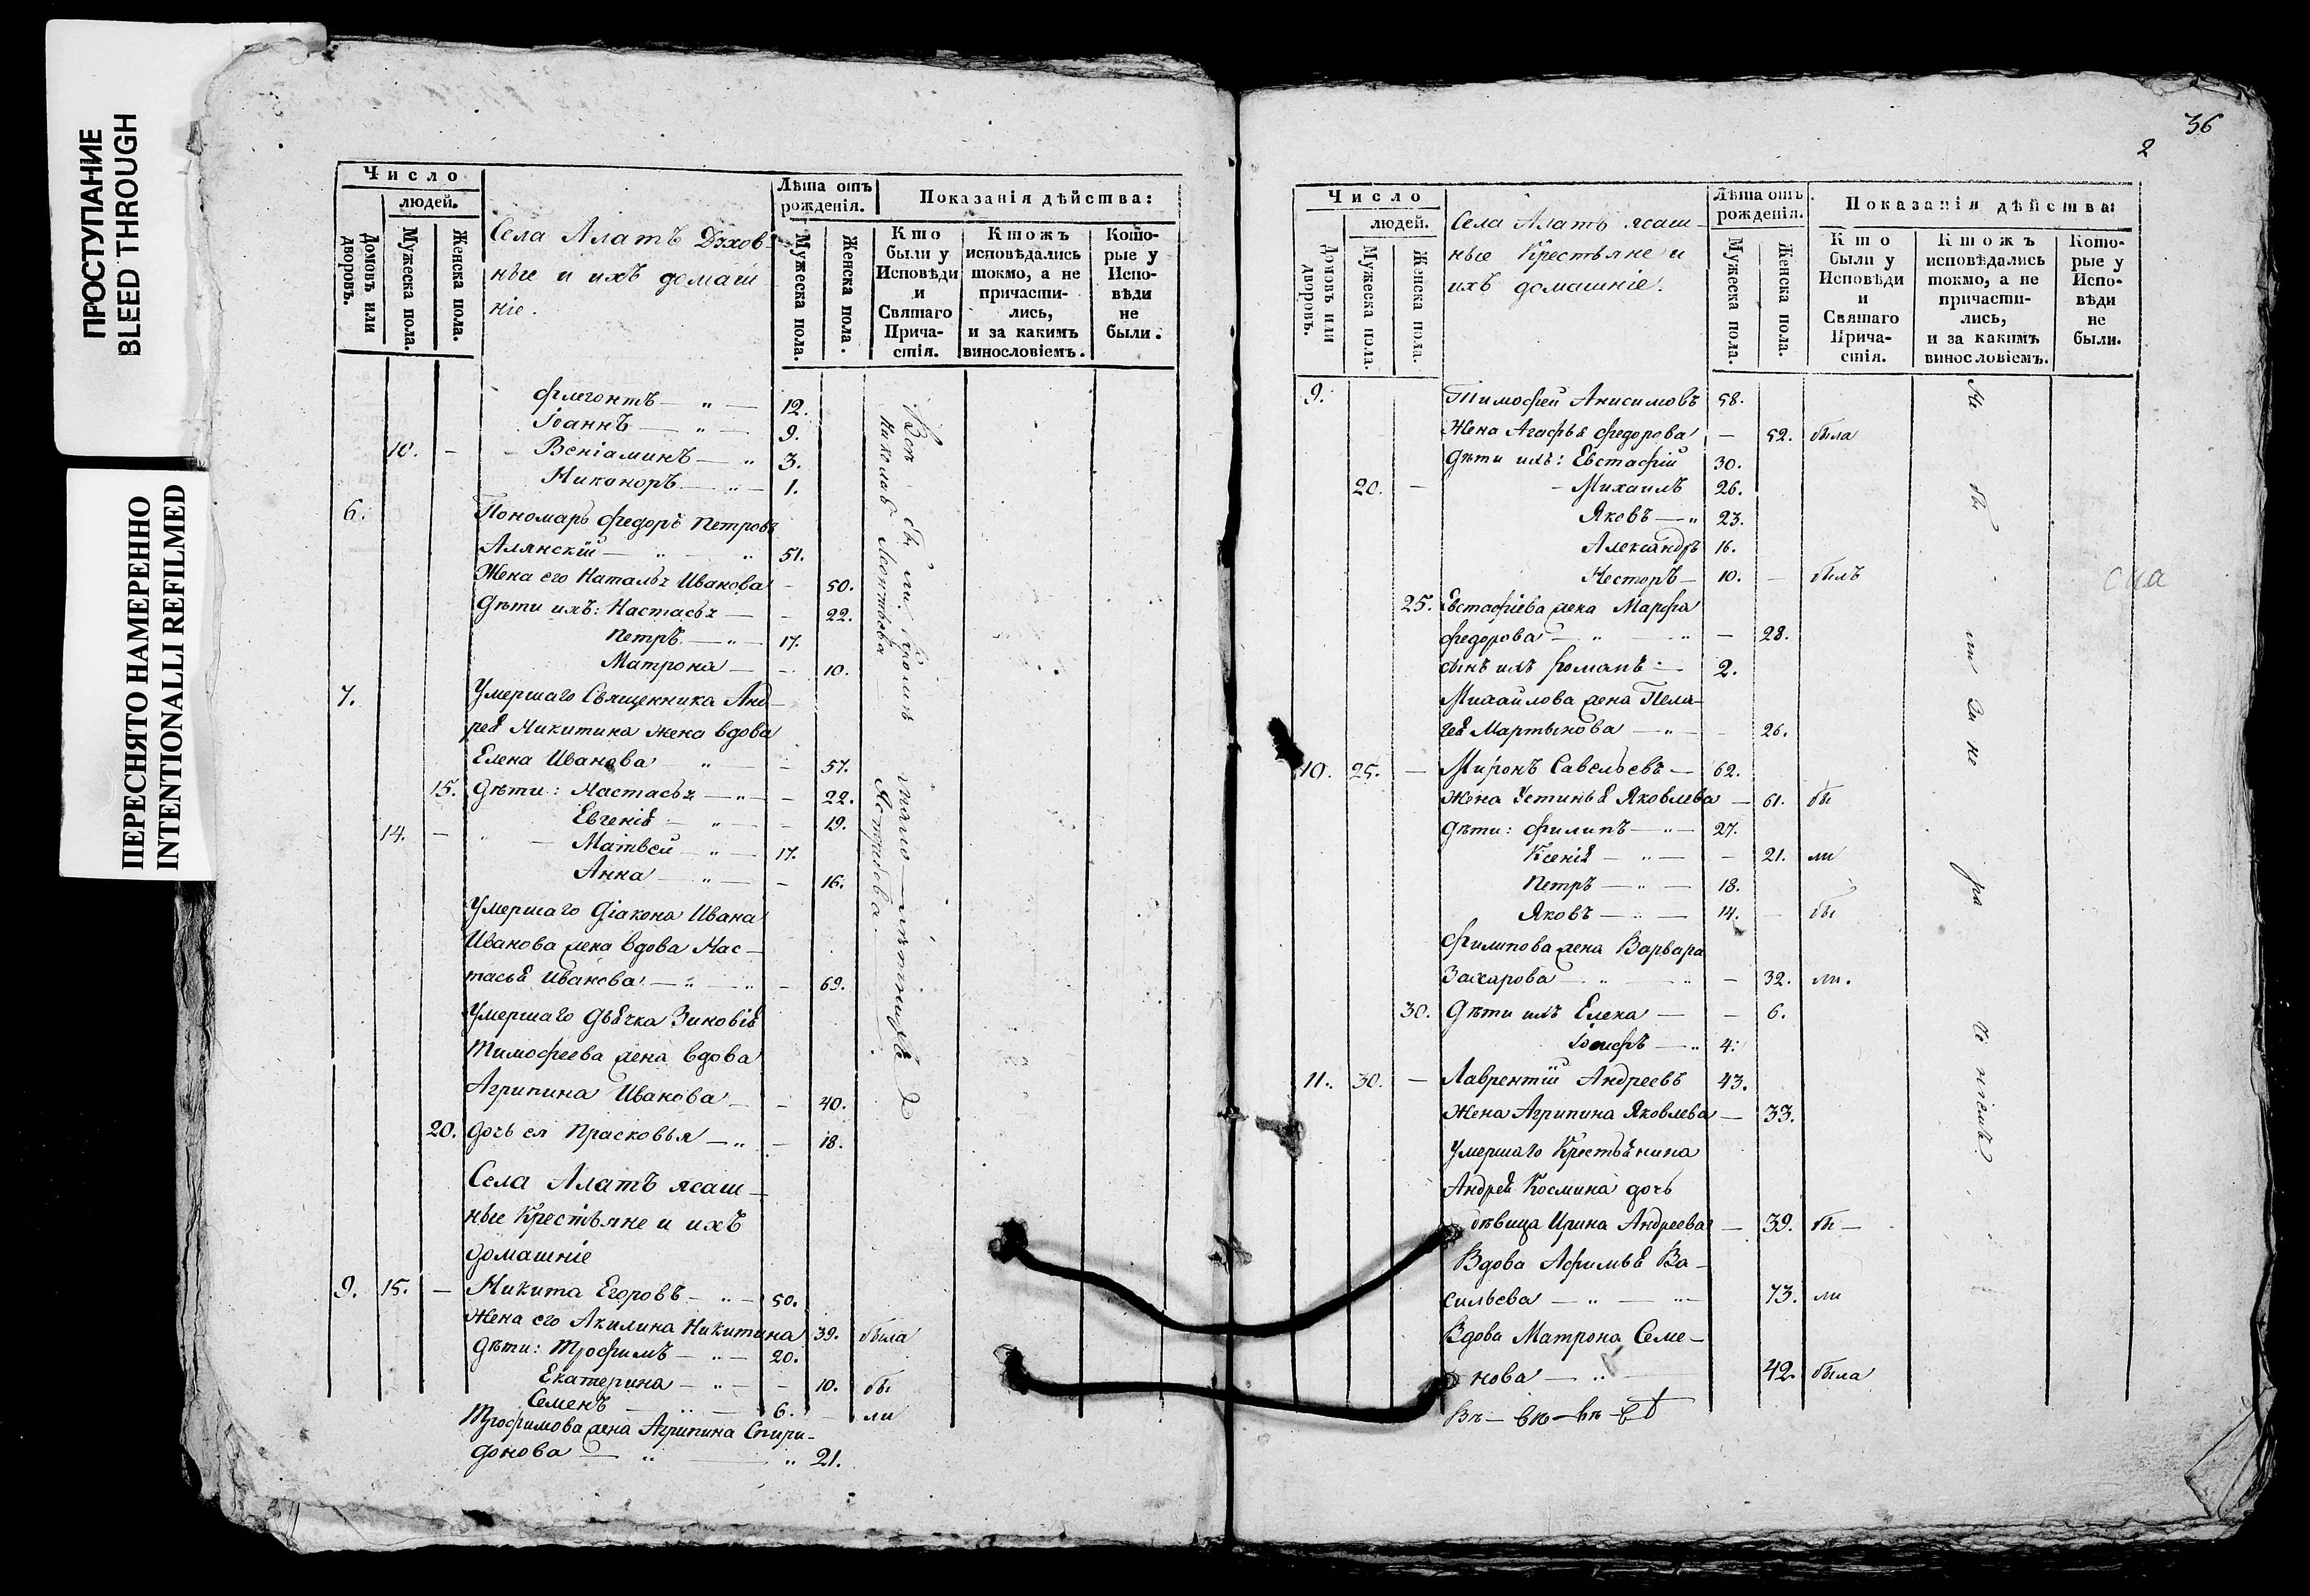 ПРОСТУПАНИЕ
BLEED THROUGH
ПЕРЕСНЯТО НАМЕРЕННО
INTENTIONALLI REFILMED
Число
людей.
Домовъ или дворовъ.
Мужеска пола.
Женска пола.
Села Алатъ Духов-
ные и ихъ домаш
ніе.
Лѣта отъ
рожденія.
Мужеска пола.
Женска пола.
Показанія дѣйства:
Кто
были у
Исповѣди
и
Святаго
Прича-
стія.
Ктожъ
исповѣдались
токмо, а не
причасти-
лись,
и за какимъ
винословіемъ.
Кото-
рые у
Испо-
вѣди
не
были.
Флегонтъ — „ — 12.
Іоаннъ — „ — 9.
10. — Веніаминъ — „ 3.
Никоноръ — „ — 1.
6. Пономарь Федоръ Петровъ
Алянскій — „ — „ 51.
Жена его Наталья Иванова — 50.
Дѣти ихъ: Настасья — — 22.
Петръ — „ — 17.
Матрона — — 10.
7. Умершаго Священника Анд-
рея Никитина жена вдова
Елена Иванова — „ — — 57.
15. Дѣти: Настасья — „ — — 22.
Евгенія — „ — — 19.
14. — „ — Матвей — „ — 17.
Анна — „ — — 16.
Умершаго Діакона Ивана
Иванова жена вдова Нас-
тасья Иванова — „ — „ — 69.
Умершаго Дьячка Зиновія
Тимофеева жена вдова
Агрипина Иванова — — 40.
20. Дочь ея Прасковья — „ — 18.
Села Алатъ ясаш-
ные Крестьяне и ихъ
домашніе
9. 15. — Никита Егоровъ — „ — 50.
Жена его Акилина Никитина 39. была
Дѣти: Трофимъ — „ — 20.
Екатерина — „ — — 10. бы
Семенъ — „ — 6. — ли
Трофимова жена Агрипина Спири-
донова — „ — „ 21.
36
2
Число
людей.
Домовъ или дворовъ.
Мужеска пола.
Женска пола.
Села Алатъ ясаш-
ные Крестьяне и
ихъ домашніе.
Лѣта отъ
рожденія.
Мужеска пола.
Женска пола.
Показанія дѣйства:
Кто
были у
Исповѣди
и
Святаго
Прича-
стія.
Ктожъ
исповѣдались
токмо, а не
причасти-
лись,
и за какимъ
винословіемъ.
Кото-
рые у
Испо-
вѣди
не
были.
9. Тимофей Анисимовъ 58.
Жена Агафья Федорова — 52. была
Дѣти ихъ: Евстафій 30.
20. — — Михаилъ 26.
Яковъ — „ 23.
Александръ 16.
Несторъ — 10. — былъ
25. Евстафіева жена Марфа
Федорова — „ — „ — 28.
сынъ ихъ Романъ — 2.
Михайлова жена Пела-
гея Мартынова — „ — — 26.
10. 25. — Миронъ Савельевъ — 62.
Жена Устинья Яковлева — 61. бы
Дѣти: Филипъ — „ — 27.
Ксенія — „ — — 21. ли
Петръ — „ — 18.
Яковъ — „ — 14. — бы
Филипова жена Варвара
Захарова — „ — „ — 32. ли.
30. Дѣти ихъ Елена — — 6.
Іосифъ — „ 4.
11. 30. — Лаврентій Андреевъ 43.
Жена Агрипина Яковлева — 33.
Умершаго Крестьянина
Андрея Космина дочь
дѣвица Ирина Андреева — 39. бы —
Вдова Афимья Ва-
сильева — „ — „ — 73. ли
Вдова Матрона Семе-
нова — „ 42. была